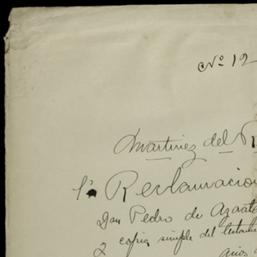 Nº 12
Martinez del
1ª Reclamacion
Don Pedro de
2 copia simple del
años